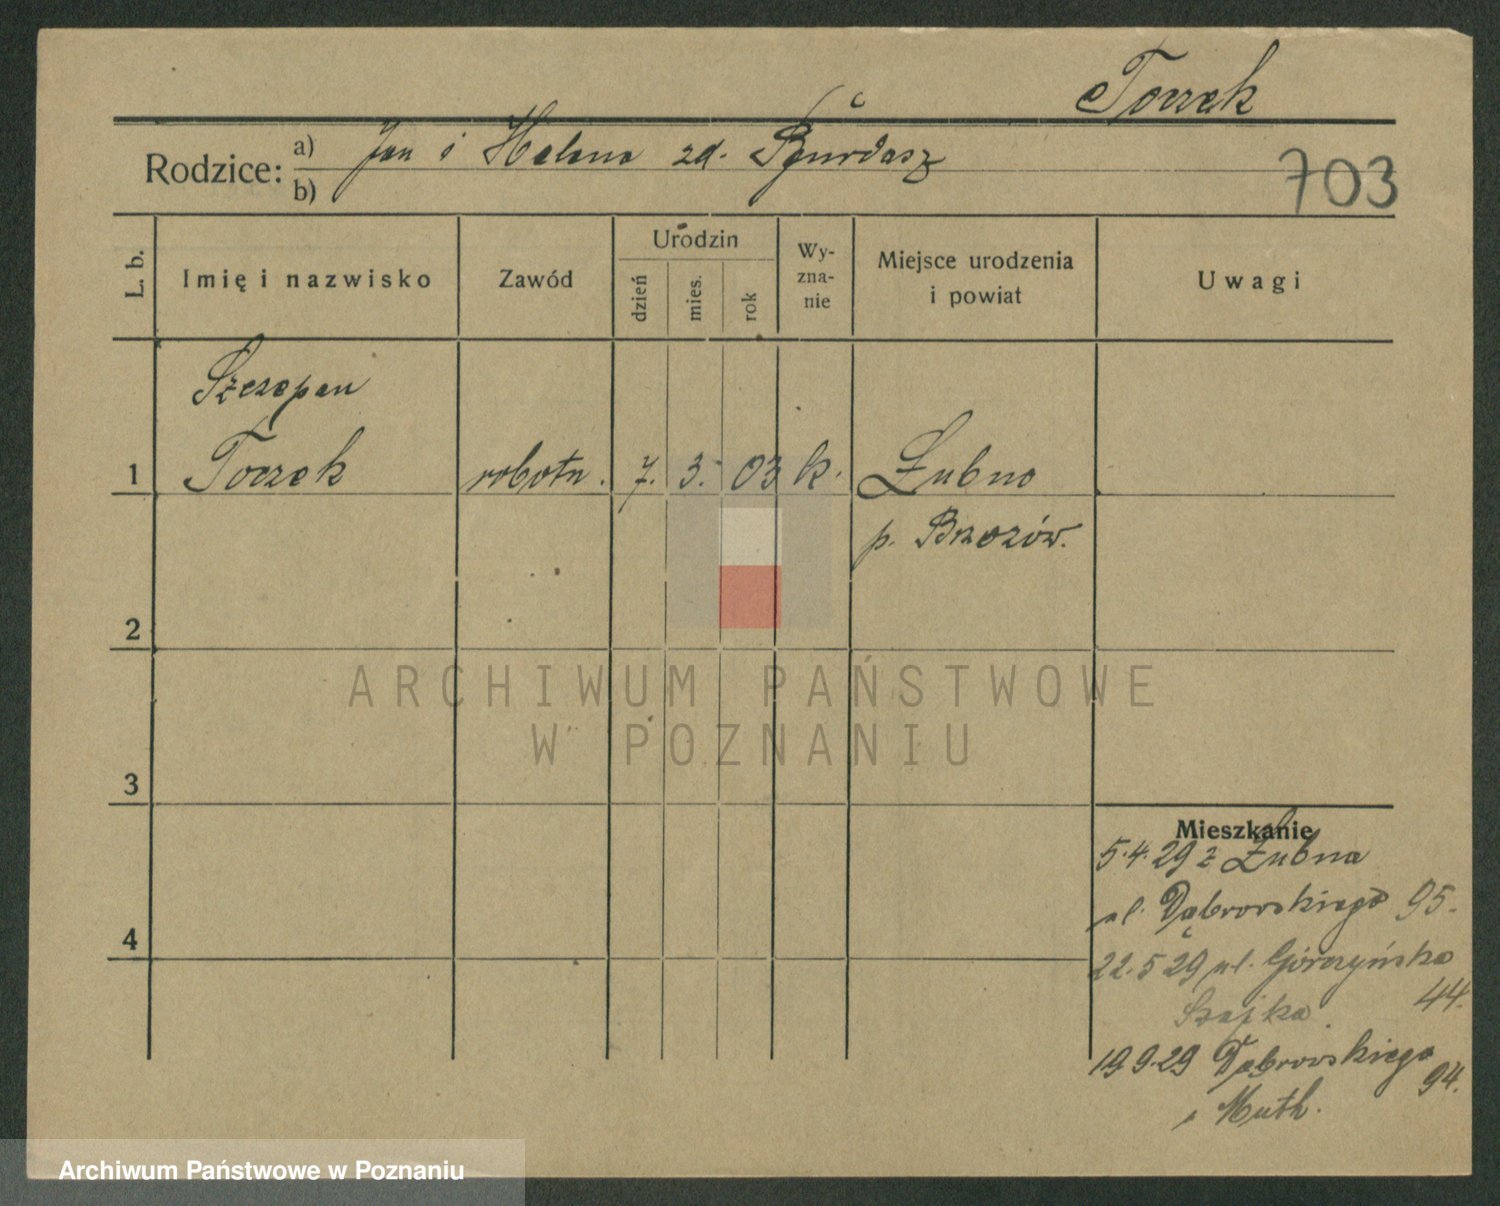 Toczek
Rodzice: a) Jan i Helena zd.
b)
703
L. b.
Imię i nazwisko
Zawód
Urodzin
dzień
mies.
rok
Wy-
zna-
nie
Miejsce urodzenia
i powiat
Uwagi
Szczepan
1 Toczek robotn. 7. 3. 03 k. Łubno
p. Brzozów.
2
ARCHIWUM PAŃSTWOWE
W POZNANIU
3
Mieszkanie
5.4.29 z Łubna
ul. Dąbrowskiego 95.
4
22.5 29 ul. Górczyńska
44.
Szajka.
19 9.29 Dąbrowskiego
94.
Muth.
Archiwum Państwowe w Poznaniu